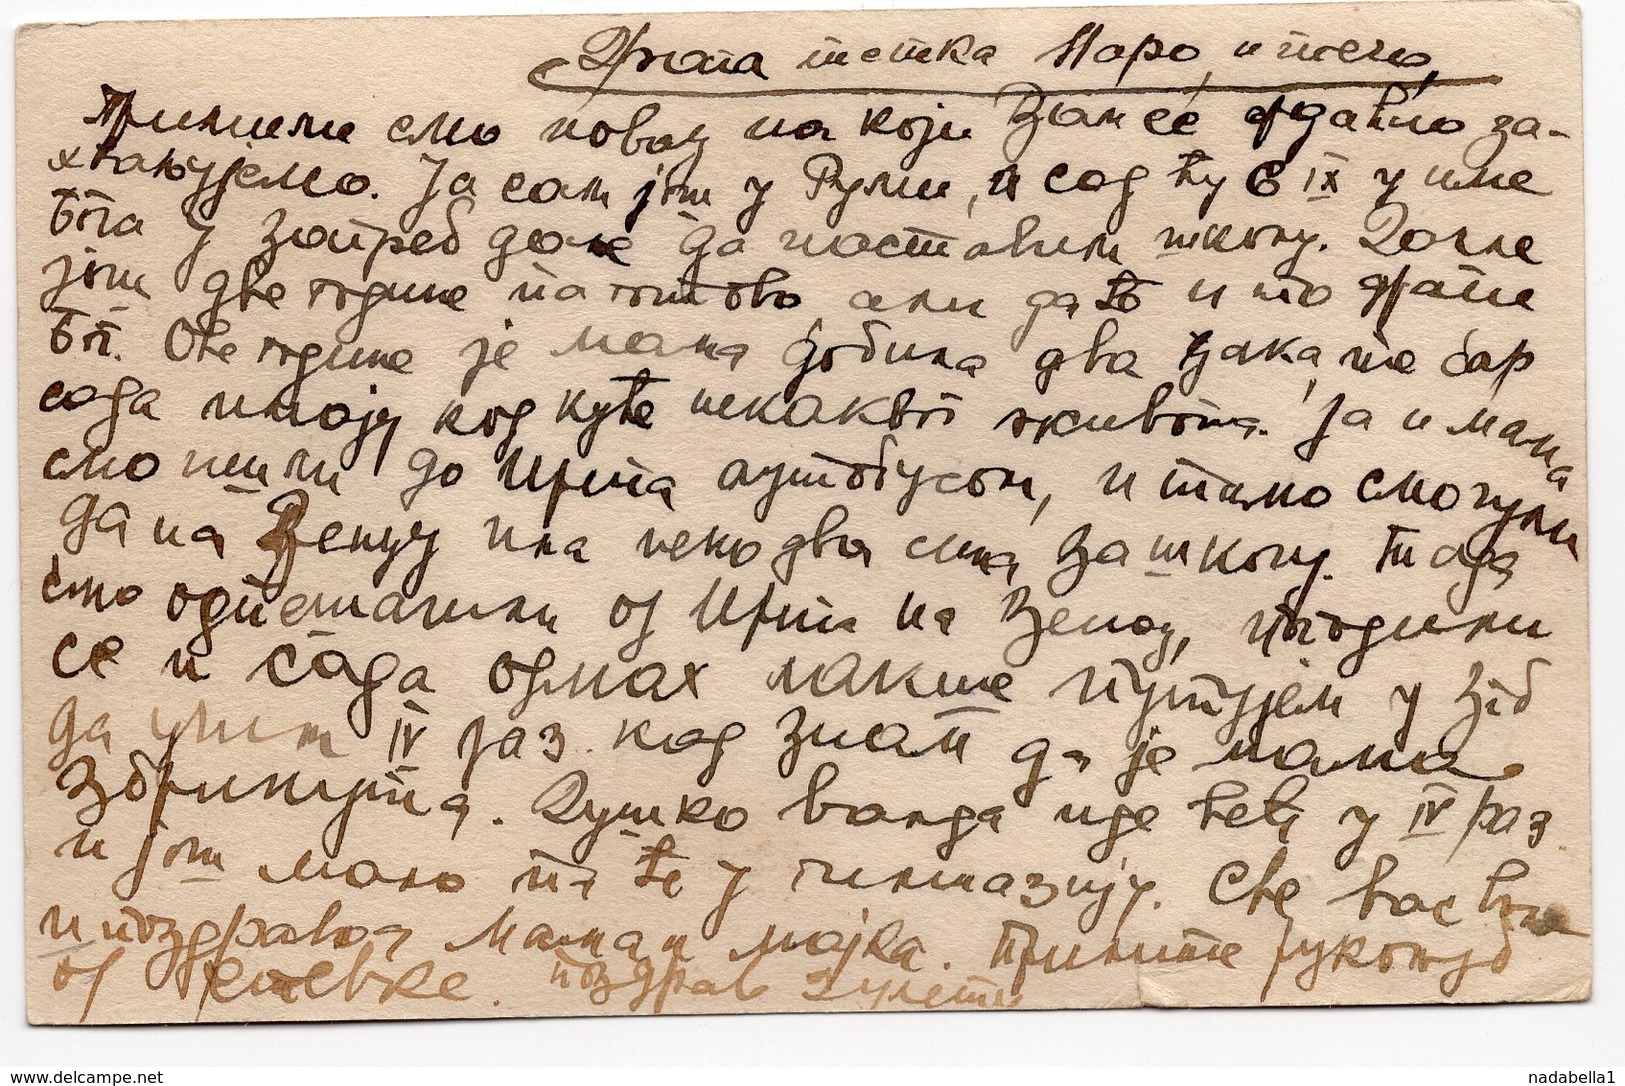 Драга тетка Маро, и течо,
Примили смо новац на који Вам се одавно за-
хваљујемо. Ја сам још у Руми, и сад ћу 6 IX у име
Бога у Загреб доле да наставим школу. Доћле
још две године па готово, али даће и то драги
Бог. Ове године је мама добила два ђака, те бар
сада имају код куће некаквог живота. Ја и мама
смо ишли до Ирига аутобусом, и тамо смо чули
да на Венцу има неко два сина за школу. Тада
смо одпешачили од Ирига на Венац, погодили
се и сада одмах лакше путујем у Згб
да учим IV раз. код знам да је мама
збринута. Душко ванда иде већ у IV раз
и још мало па ће у гимназију. Све вас воли
и поздравља мама и мајка. Примите рукољуб
од Стевке. поздрав
www.delcampe.net
nadabella1